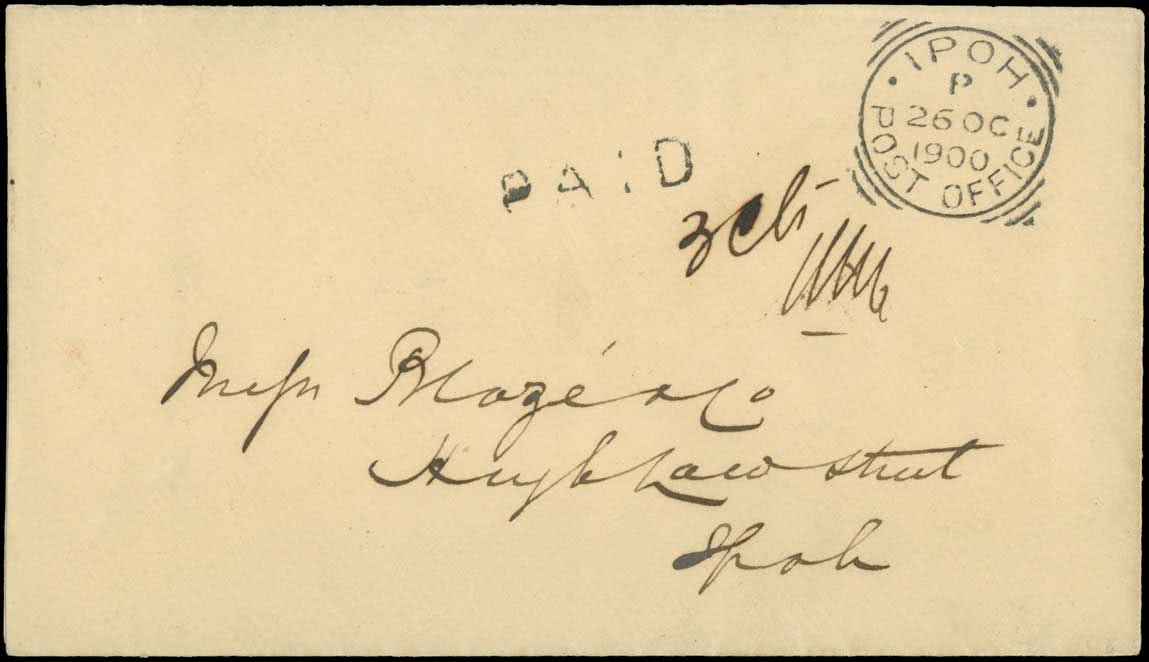 IPOH
P
26 OC
1900
POST OFFICE
PAID
3 cts
Messrs Blazé & Co
Hugh Low Street
Ipoh